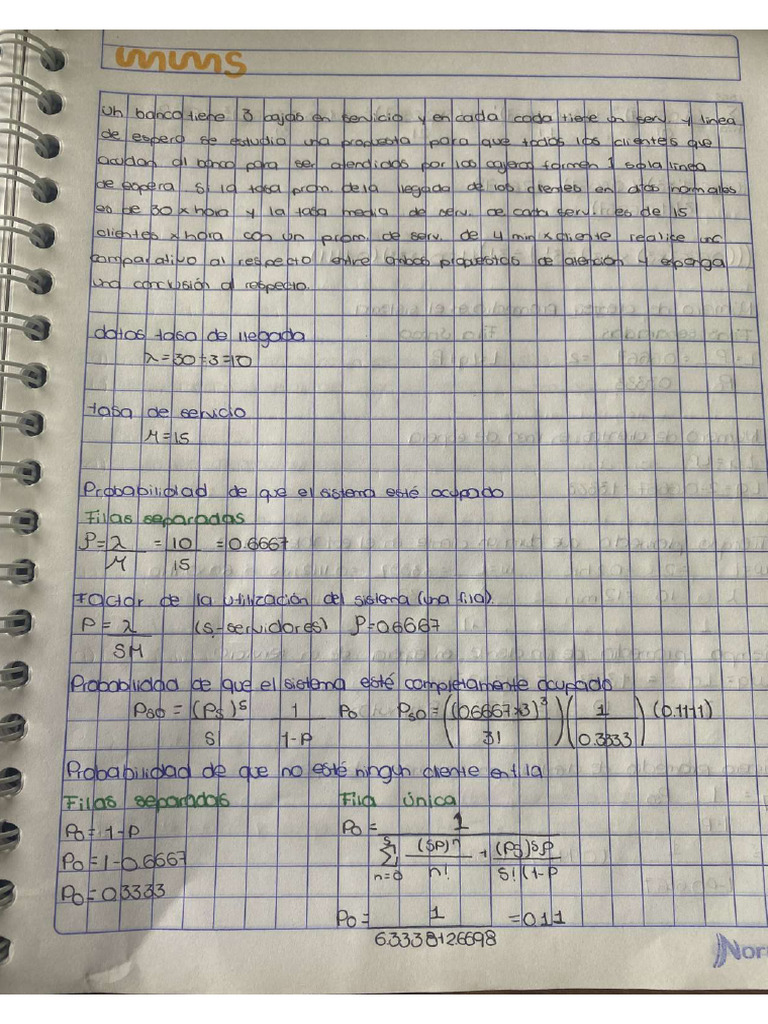 mums
Un banco tiene 3 bajas en servicio y en cada cada tiene un serv. y linea
de espera se estudia una propuesta para que todos los clientes que
acudan al banco para ser atendidos por los cajeros formen 1 sola linea
de espera si la tasa prom. de la llegada de los clientes en dias normales
es de 30 x hora y la tasa media de serv. de cada serv. es de 15
clientes x hora con un prom. de serv. de 4 min x cliente realice una
comparativo al respecto entre ambos propuestas de atención y esponga
una conclusión al respecto.
datos tasa de llegada
λ = 30 ÷ 3 = 10
tasa de servicio
M = 15
Probabilidad de que el sistema esté ocupado
Filas separadas
P = λ/M = 10/15 = 0.6667
Factor de la utilización del sistema (una fila).
P = λ/SM (s-servidores) P = 0.6667
Probabilidad de que el sistema esté completamente ocupado
Pso = (Ps)^s/s! 1/1-P Po Pso = ((0.6667*3)^3/3!)(1/0.3333)(0.1111)
Probabilidad de que no esté ningun cliente en la
Filas separadas Fila única
Po = 1-P Po = 1/(s Σ n=0 (SP)^n/n! + (Ps)^s P/s! (1-P)
Po = 1-0.6667
Po = 0.3333
Po = 1/6.3338126698 = 0.11
Nor